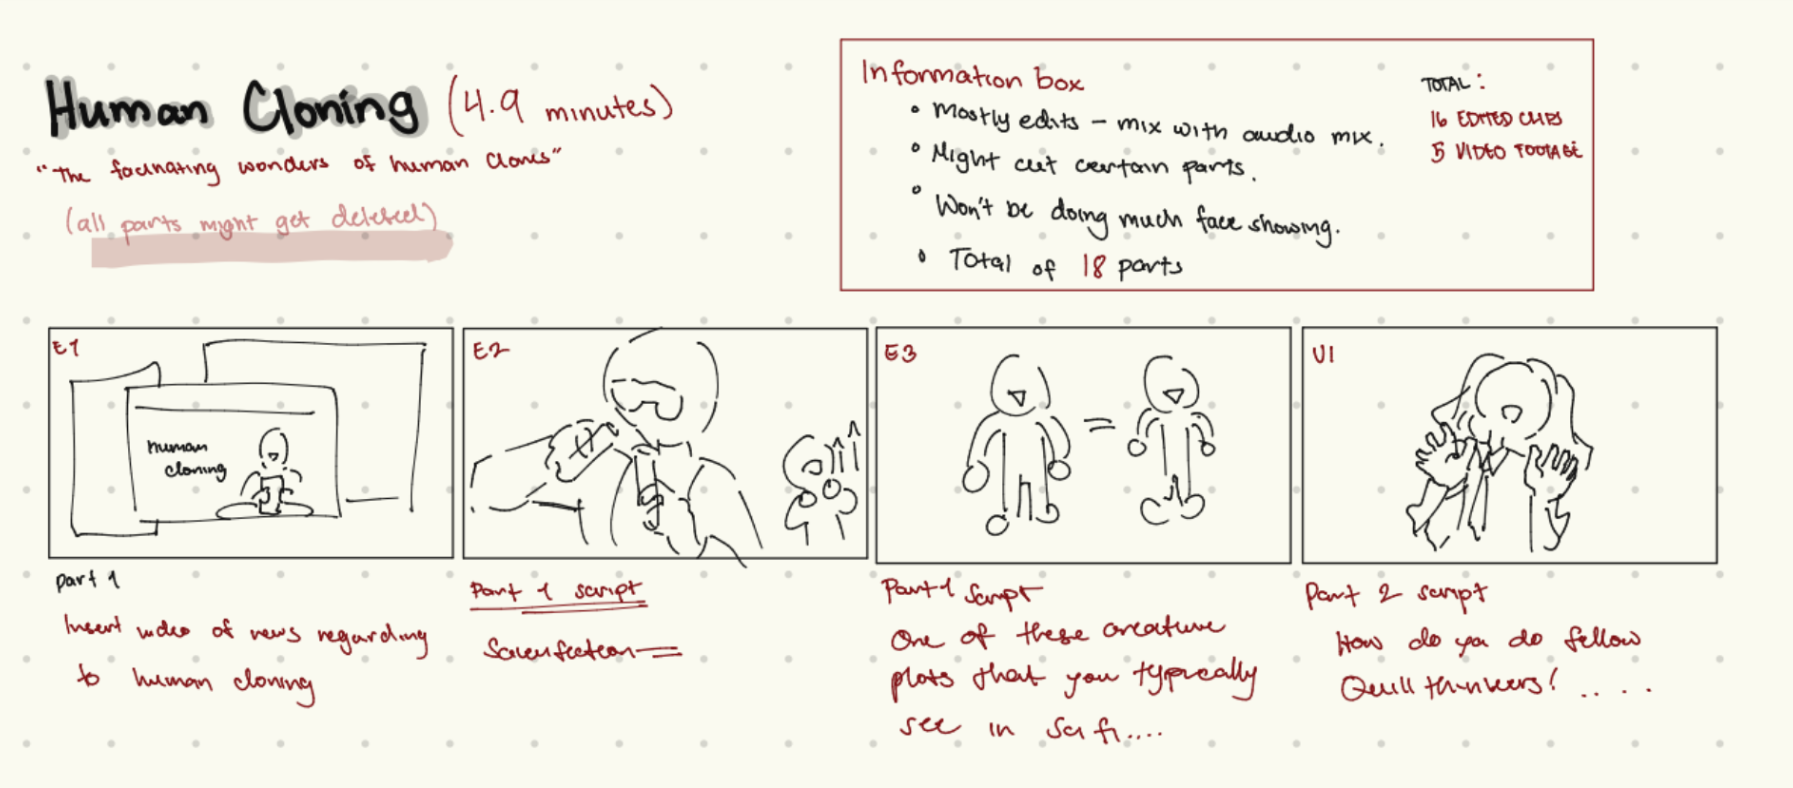 Human Cloning (4.9 minutes)
"The facinating wonders of human clones"
(all parts might get deleted)
Information box
• Mostly edits - mix with audio mix.
• Might cut certain parts.
• Won't be doing much face showing.
• Total of 18 parts
TOTAL:
16 EDITED CLIPS
5 VIDEO FOOTAGE
E1
human
cloning
E2
E3
=
V1
part 1
Insert video of news regarding
to human cloning
Part 1 script
Part 1 Script
One of these creature
plots that you typically
see in Sci fi....
Part 2 script
How do ya do fellow
Quill thinkers! ....